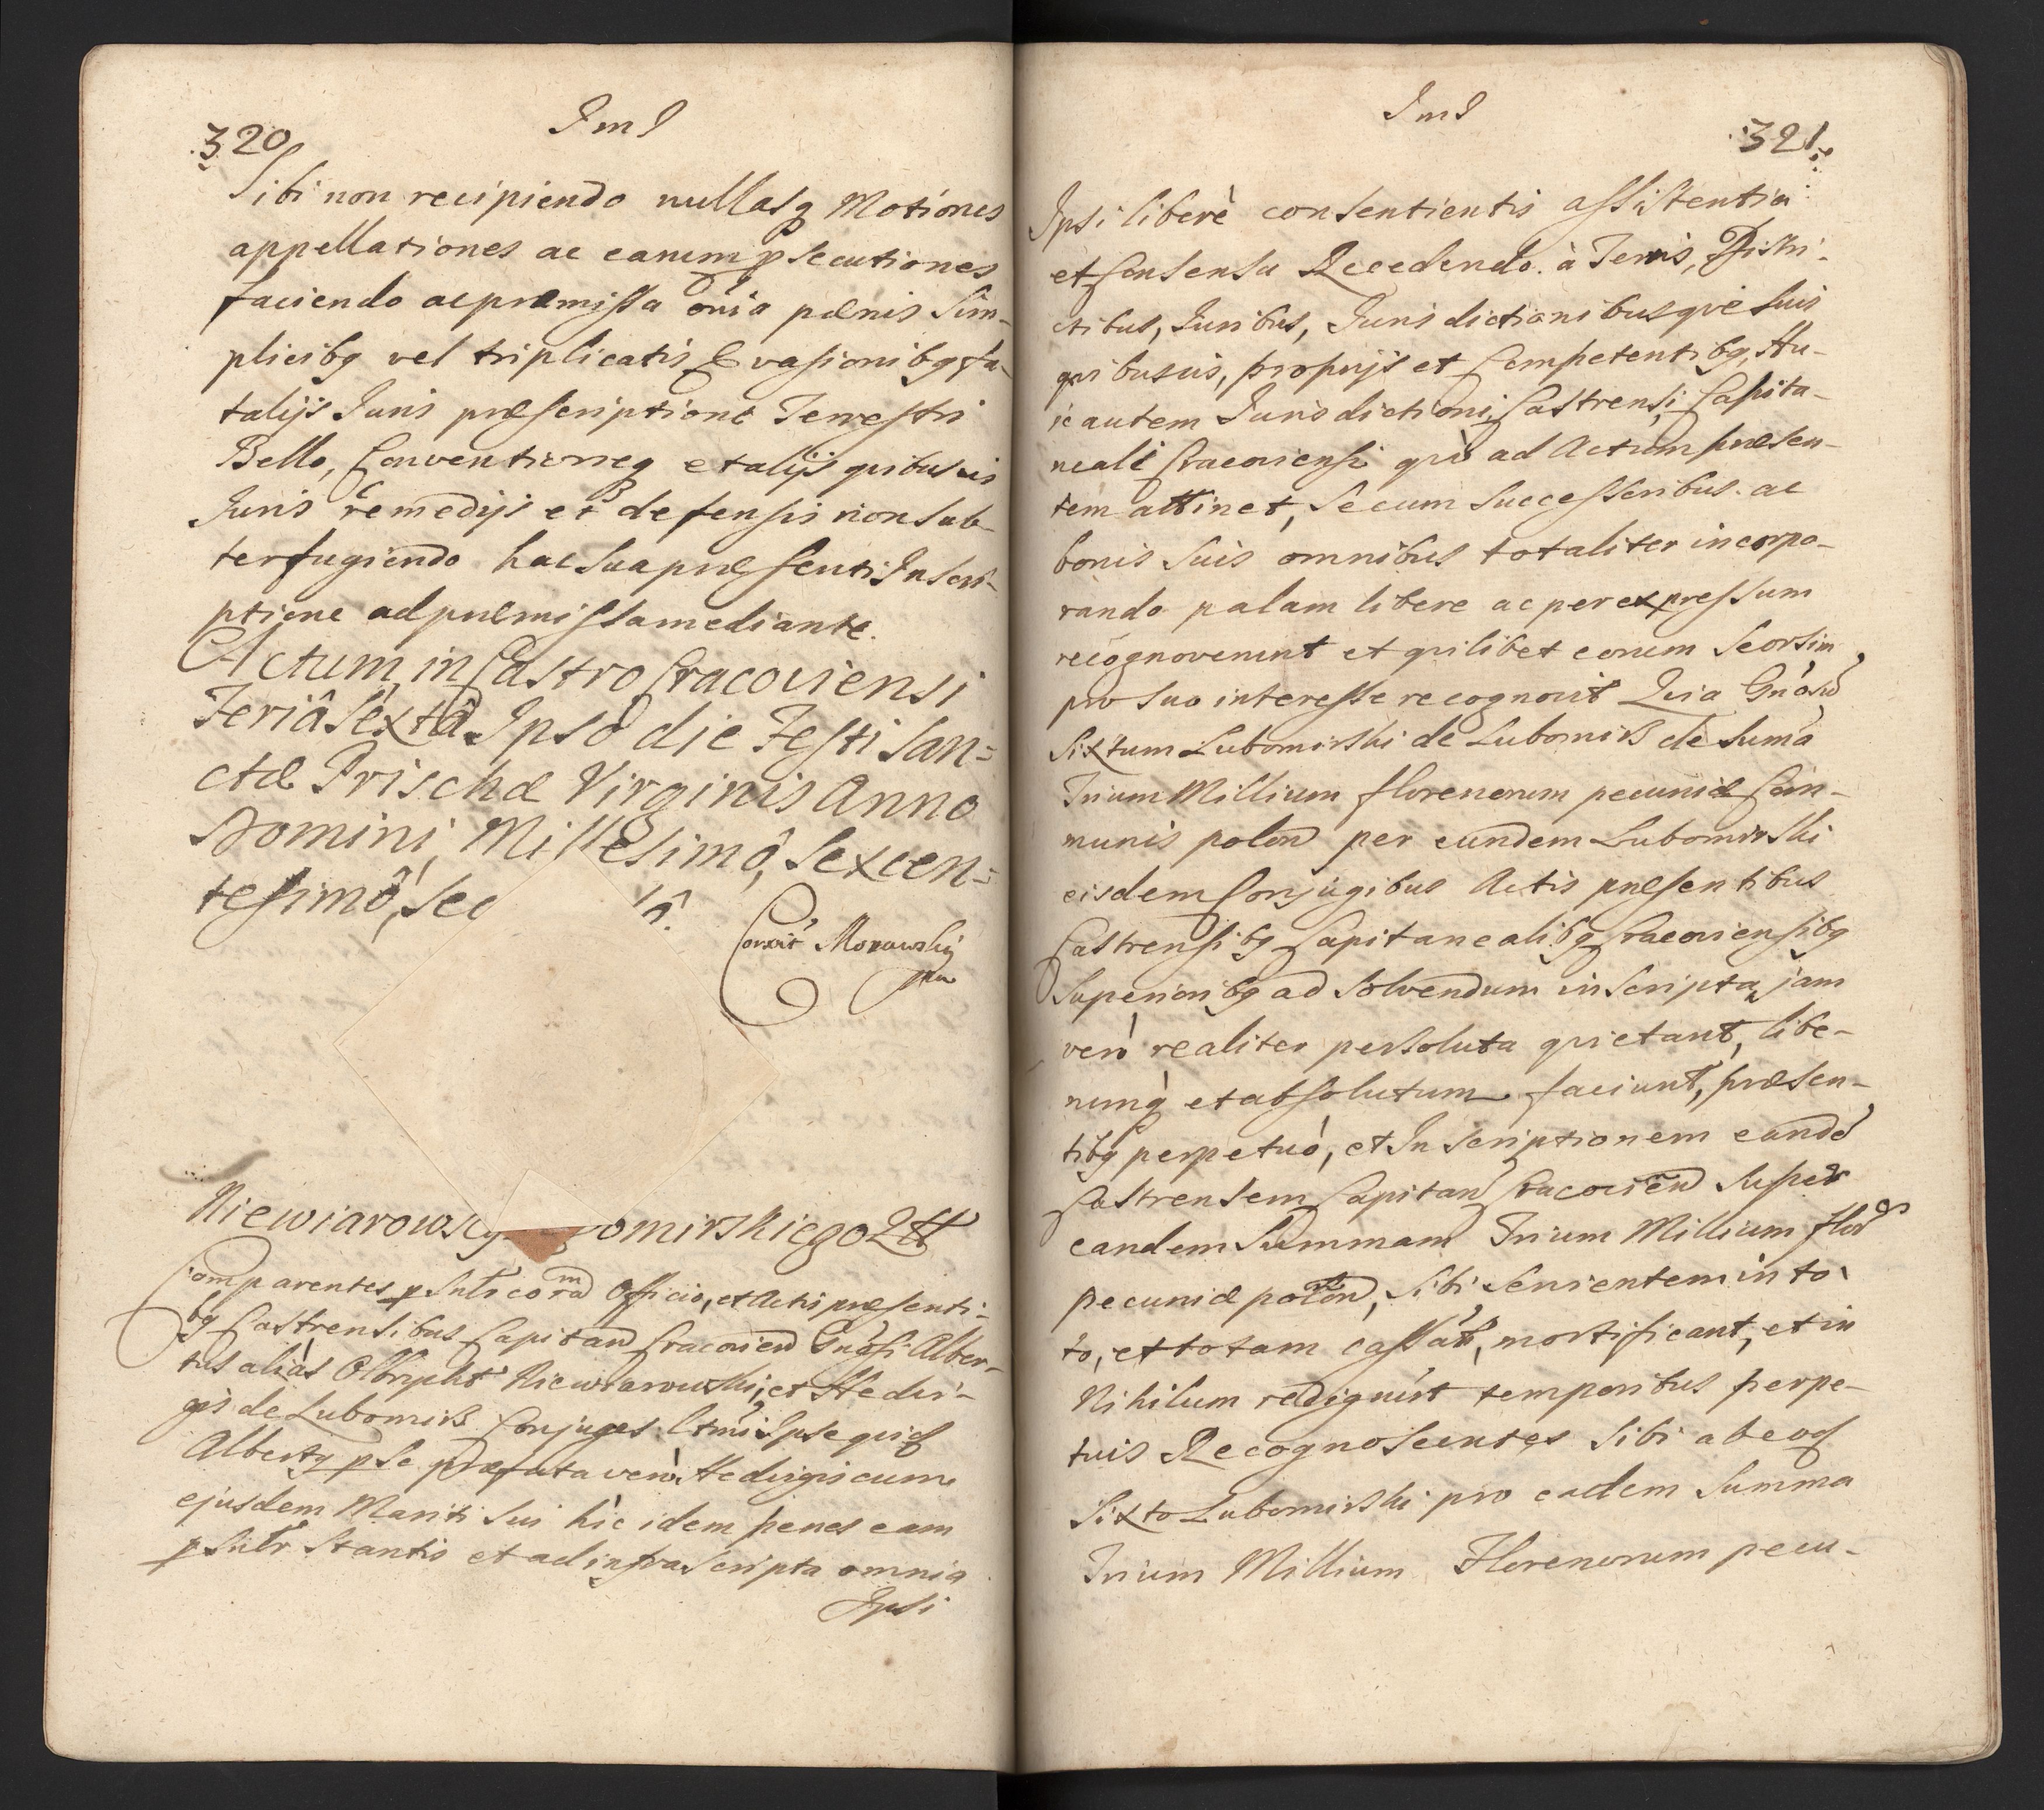 320
JmJ
Sibi non recipiendo nullasq Motiones
appellationes ac earum psecutiones
faciendo ac præmissa oĩa pœnis sim-
plicibq vel triplicatis Evasionibq fa-
talijs Juris præscriptione Terrestri
Bello, Conventioneq et alijs quibusvis
Juris remedijs et defensis non sub-
terfugiendo hac sua præsenti Inscri-
ptione ad præmissa mediante.
Actum in Castro Cracoviensi
Feriâ Sextâ Ipso die Festi San=
ctæ Priscæ Virginis Anno
Domini Millesimô, Sexcen=
tesimô, Sec
Correxit Morawskij
mp
Niewiarowscy omirskiego Qtt
Comparentes psnlr coram Officio, et Actis præsenti-
bq Castrensibus Capitan Cracovien Gnosi Alber-
tus alias Olbrycht Niewiarowski, et Hedvi-
gis de Lubomirz Conjuges ltmi Ipse quid
Albertq p se præfata vero Hedvigis cum
ejusdem Mariti sui hic idem penes eam
psnlr stantis et ad infrascripta omnia
Ipsi
JmJ
321
Ipsi liberè consentientis assistentia
et Consensu Recedendo à Terris, Distri-
ctibus, Juribus, Jurisdictionibusquè suis
quibusvis, proprijs et Competentibq, Hu-
ic autem Jurisdictioni Castrensi, Capita-
neali Cracoviensi quò ad Actum præsen-
tem attinet, Se cum Successoribus ac
bonis suis omnibus totaliter incorpo-
rando palam libere ac per expressum
recognoverunt et quilibet eorum Seorsim
pro suo interesse recognovit Quia Gnosũ
Sixtum Lubomirski de Lubomirz de Suma
Trium Millium florenorum pecuniæ Com-
munis polon per eundem Lubomirski
eisdem Conjugibus Actis præsentibus
Castrensibq Capitanealibq Cracoviensibq
Superioribq ad solvendum inscripta, jam
verò realiter persoluta quietant, libe-
rumq et absolutum faciunt, præsen-
tibq perpetuò, et Inscriptionem eandẽ
Castrensem Capitan Cracovien Super
eandem Summam Trium Millium flor
pecuniæ polon, sibi servientem in to-
to, et totam cassãt, mortificant, et in
Nihilum redigunt temporibus perpe-
tuis Recognoscentes sibi ab eod
Sixto Lubomirski pro eadem Summa
Trium Millium Florenorum pecu-